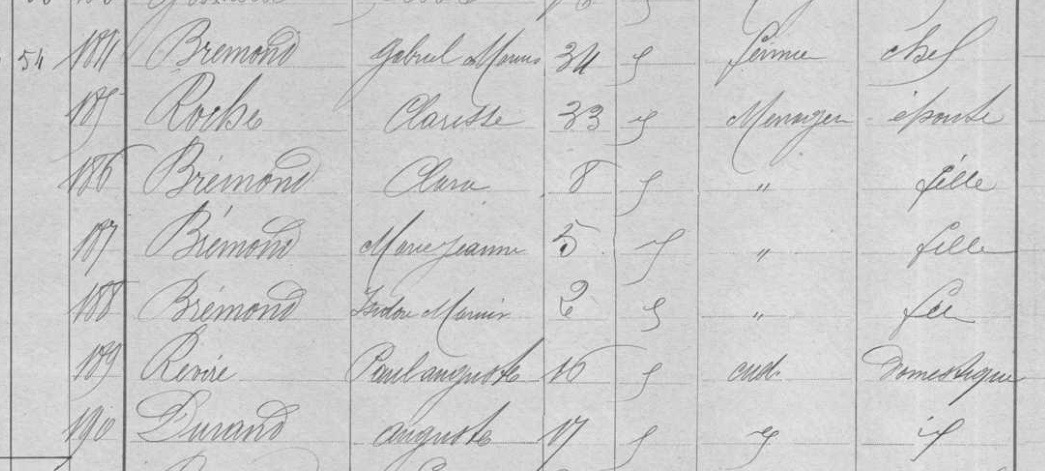 54 184 Brémond Gabriel Marius 34 f fermier chef
185 Roche Clarisse 33 f Ménagère épouse
186 Brémond Clara 8 f " fille
187 Brémond Marie Jeanne 5 f " fille
188 Brémond Isidore Marius 2 f " fils
189 Reviré Paul auguste 16 f cult. Domestique
190 Durand auguste 17 f